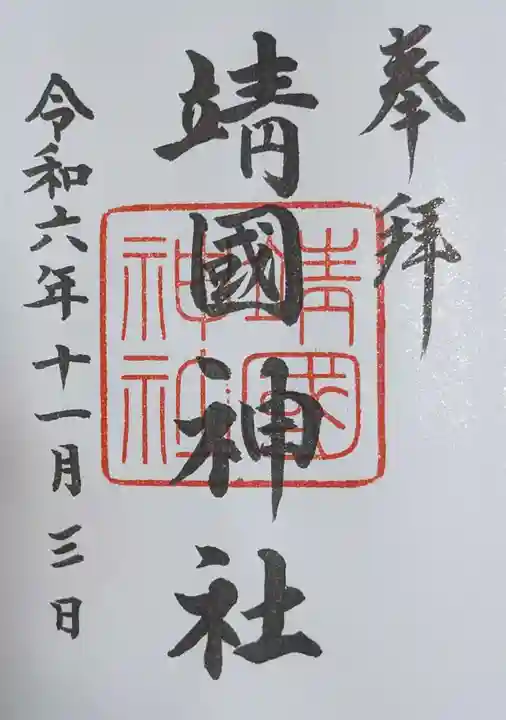 奉拜
靖國神社
靖國神社
令和六年十一月三日